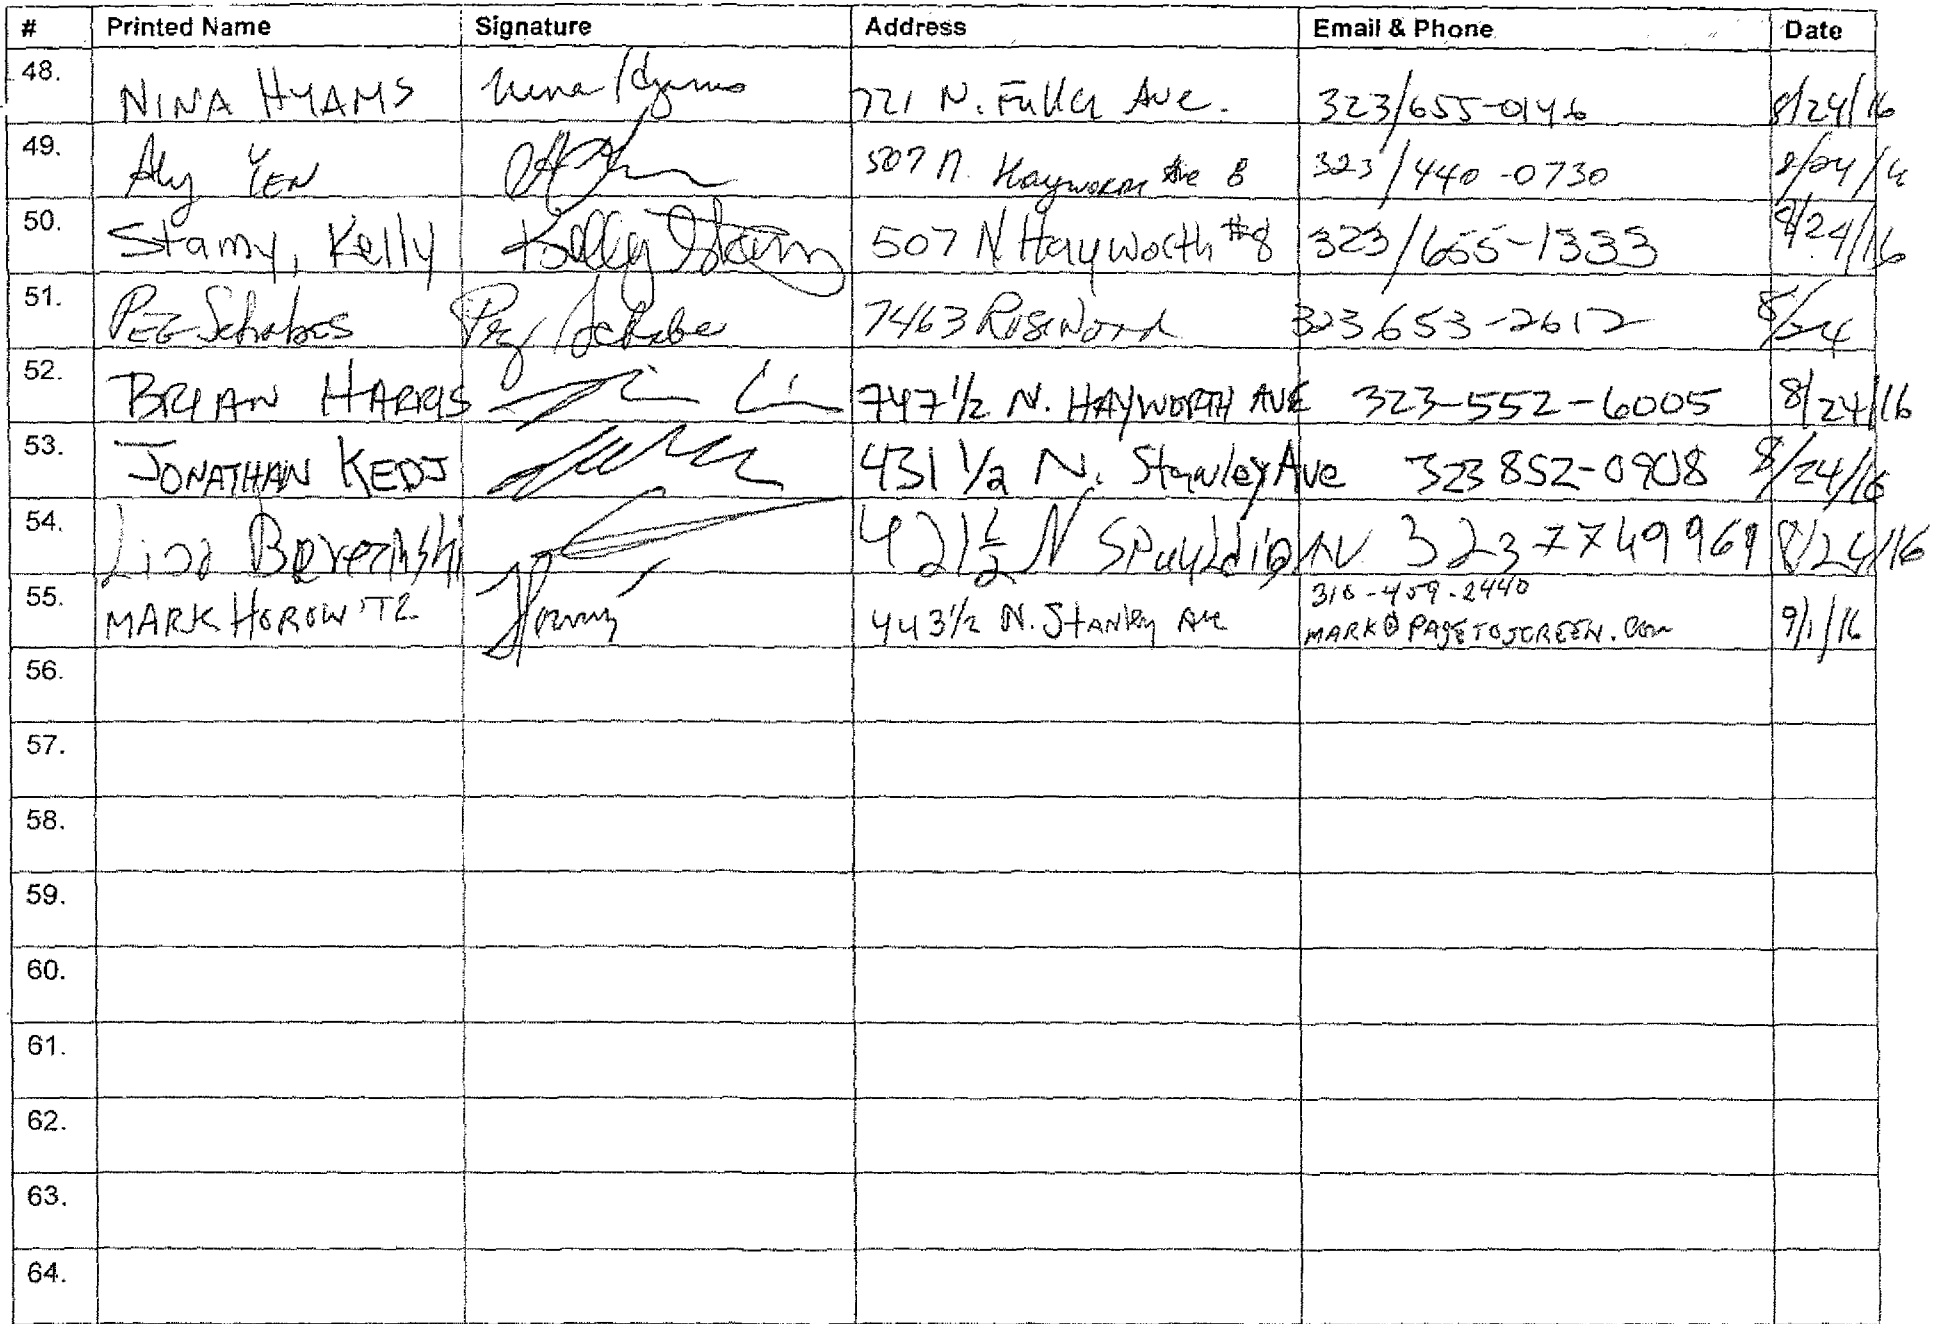 # Printed Name Signature Address Email & Phone Date
48. NINA HYAMS Nina Hyams 721 N. Fuller Ave. 323/655-0146 8/24/16
49. Aly YEN 507 N. Hayworth Ave 8 323/440-0730 8/24/16
50. Stamy, Kelly Kelly Stamy 507 N Hayworth #8 323/655-1333 8/24/16
51. PEG Schabes Peg Schabes 7463 Rosewood 323 653-2612 8/24
52. BRYAN HARRIS 747 1/2 N. HAYWORTH AVE 323-552-6005 8/24/16
53. JONATHAN KEDJ 431 1/2 N. Stanley Ave 323 852-0908 8/24/16
54. Lisa 421 1/2 N Spaulding AV 323 7749969 8/24/16
55. MARK HOROWITZ 443 1/2 N. Stanley Ave 310-459-2440
MARK@PAGETOSCREEN.COM 9/1/16
56.
57.
58.
59.
60.
61.
62.
63.
64.